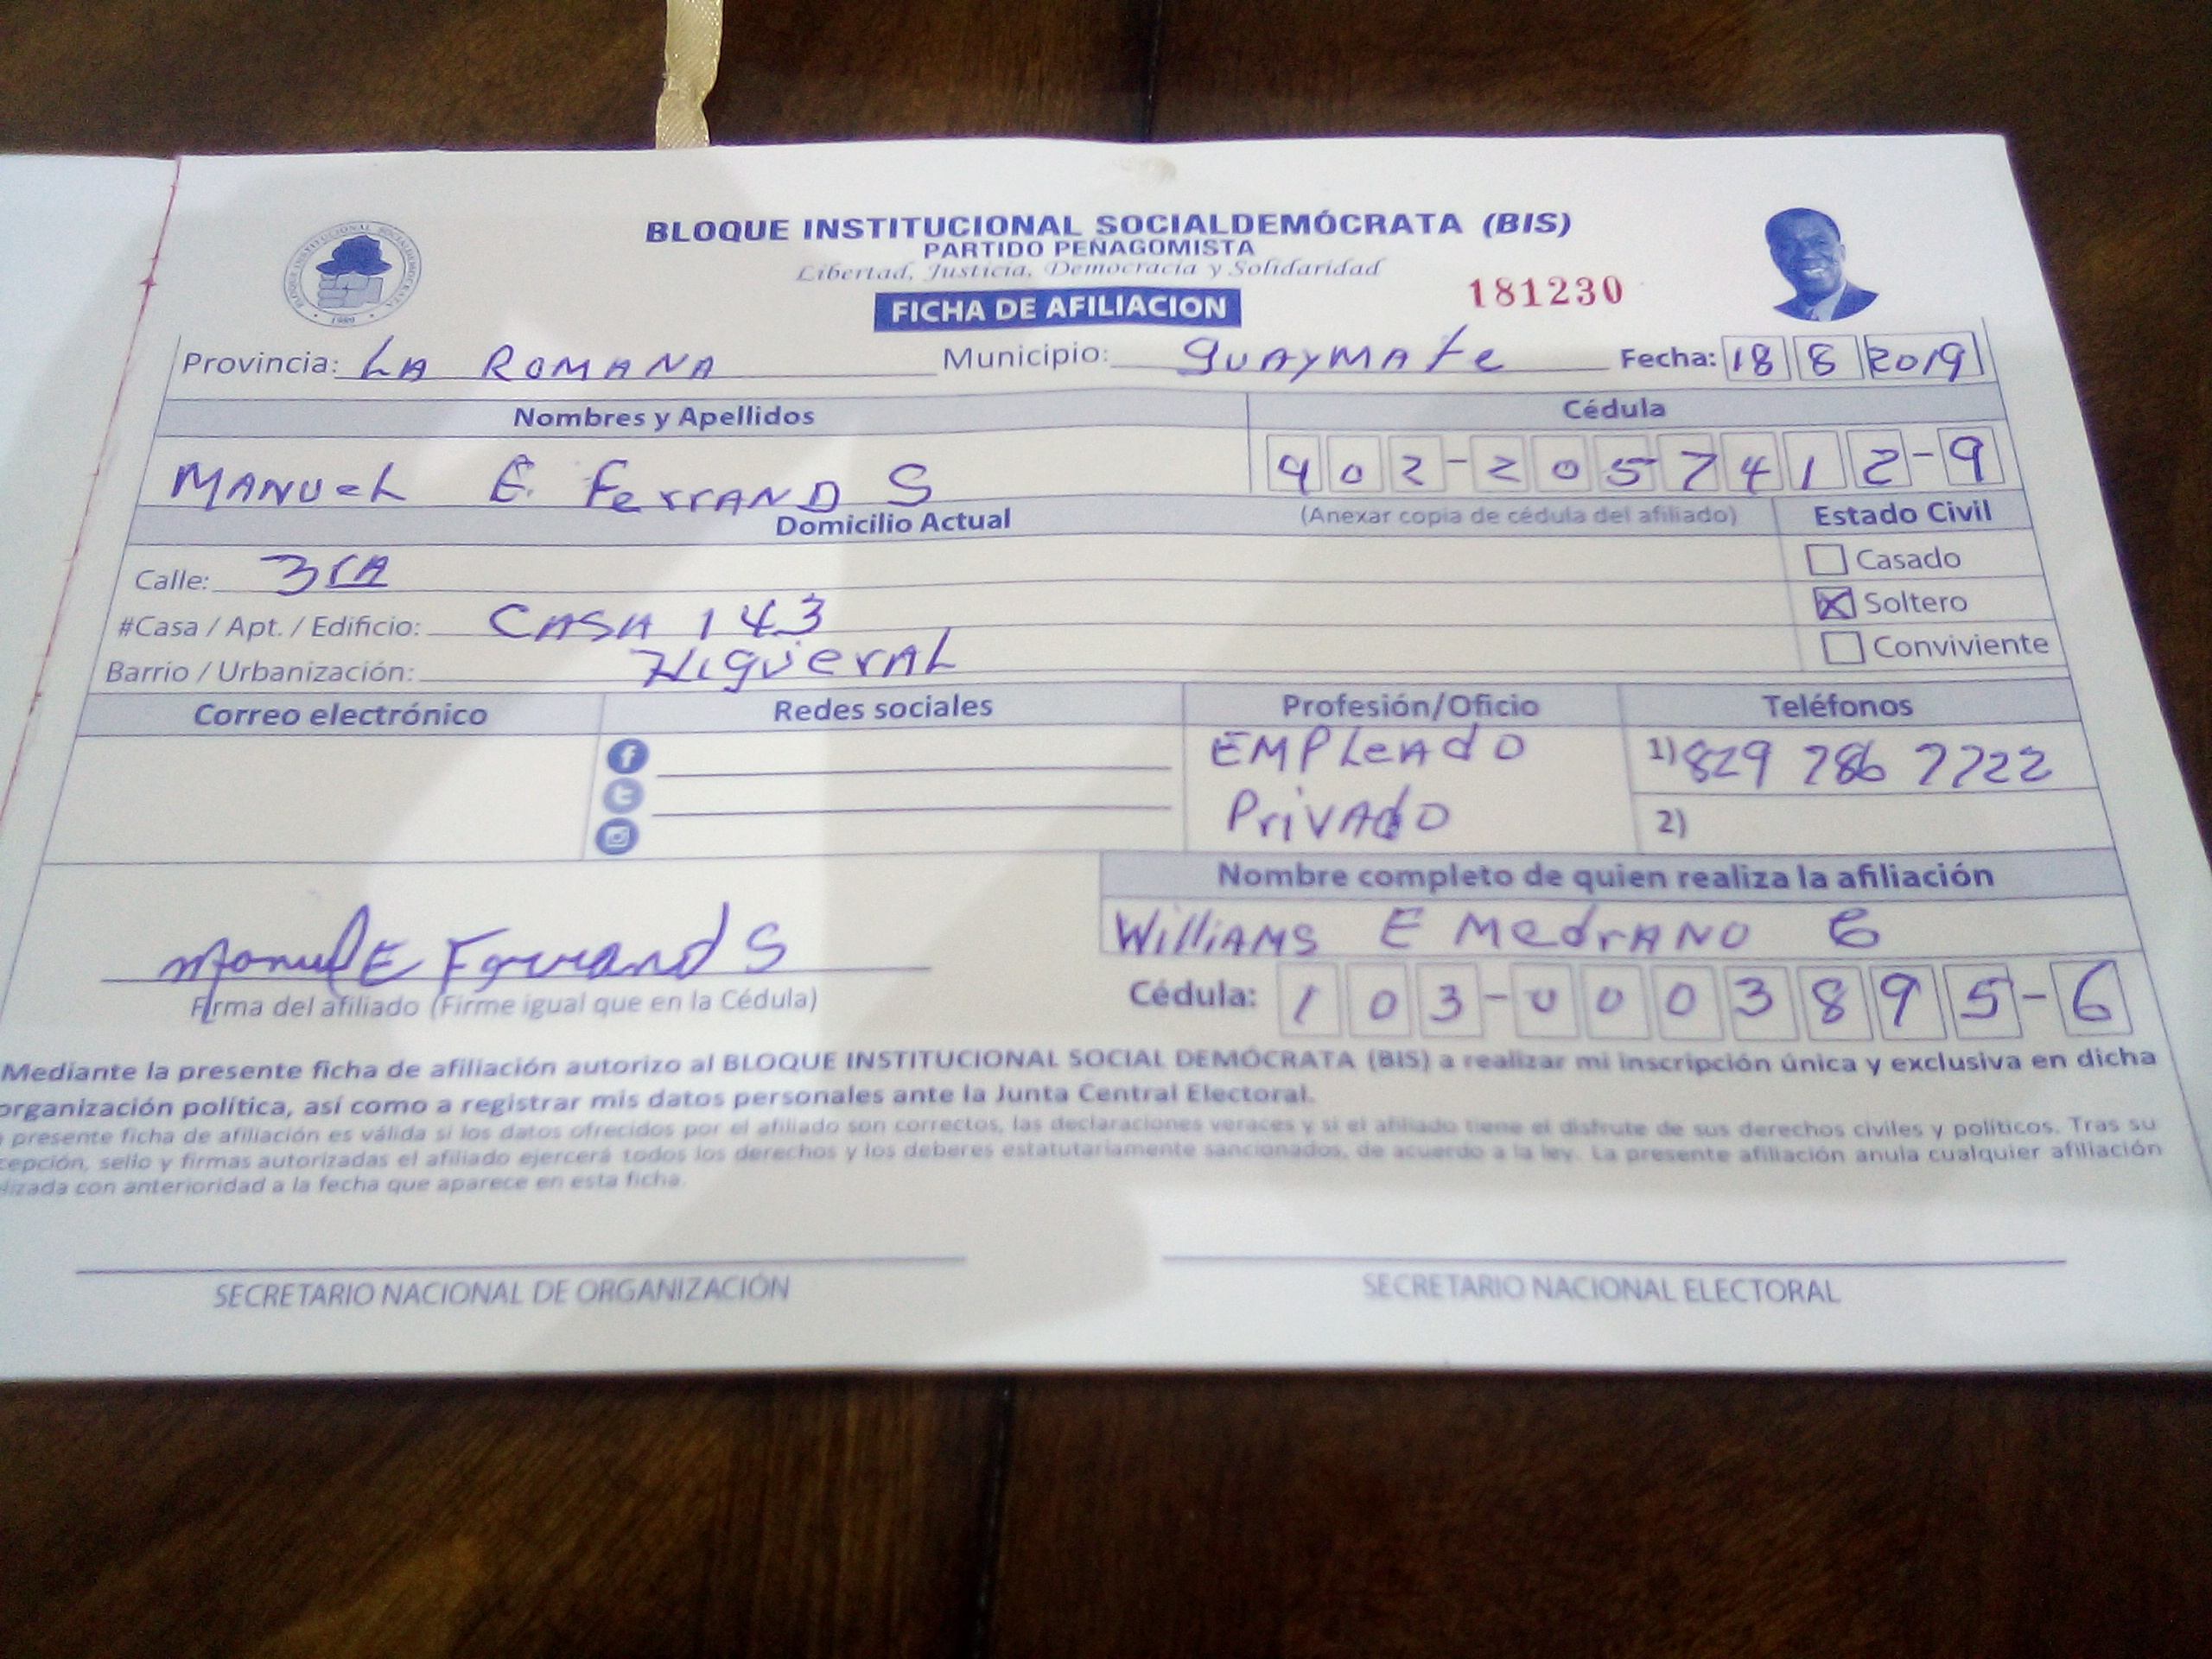 BLOQUE INSTITUCIONAL SOCIALDEMÓCRATA (BIS)
PARTIDO PEÑAGOMISTA
Libertad, Justicia, Democracia y Solidaridad
FICHA DE AFILIACION
181230
BLOQUE INSTITUCIONAL SOCIALDEMOCRATA
1989
Provincia: LA ROMANA Municipio: guaymate Fecha: 18 8 2019
Nombres y Apellidos Cédula
MANUEL E. FerrAND S 402-2057412-9
Domicilio Actual (Anexar copia de cédula del afiliado) Estado Civil
Calle: 3rA
Casado
#Casa / Apt. / Edificio: CASA 143
Soltero
Barrio / Urbanización: HiguerAL
Conviviente
Correo electrónico Redes sociales Profesión/Oficio Teléfonos
EMPLeAdO 1) 829 786 7722
PriVAdO 2)
Nombre completo de quien realiza la afiliación
WilliAMS E MedrANO
Manuel E Ferrand S
Firma del afiliado (Firme igual que en la Cédula)
Cédula: 103-0003895-6
Mediante la presente ficha de afiliación autorizo al BLOQUE INSTITUCIONAL SOCIAL DEMÓCRATA (BIS) a realizar mi inscripción única y exclusiva en dicha
organización política, así como a registrar mis datos personales ante la Junta Central Electoral.
presente ficha de afiliación es válida si los datos ofrecidos por el afiliado son correctos, las declaraciones veraces y si el afiliado tiene el disfrute de sus derechos civiles y políticos. Tras su
cepción, sello y firmas autorizadas el afiliado ejercerá todos los derechos y los deberes estatutariamente sancionados, de acuerdo a la ley. La presente afiliación anula cualquier afiliación
lizada con anterioridad a la fecha que aparece en esta ficha.
SECRETARIO NACIONAL DE ORGANIZACIÓN SECRETARIO NACIONAL ELECTORAL